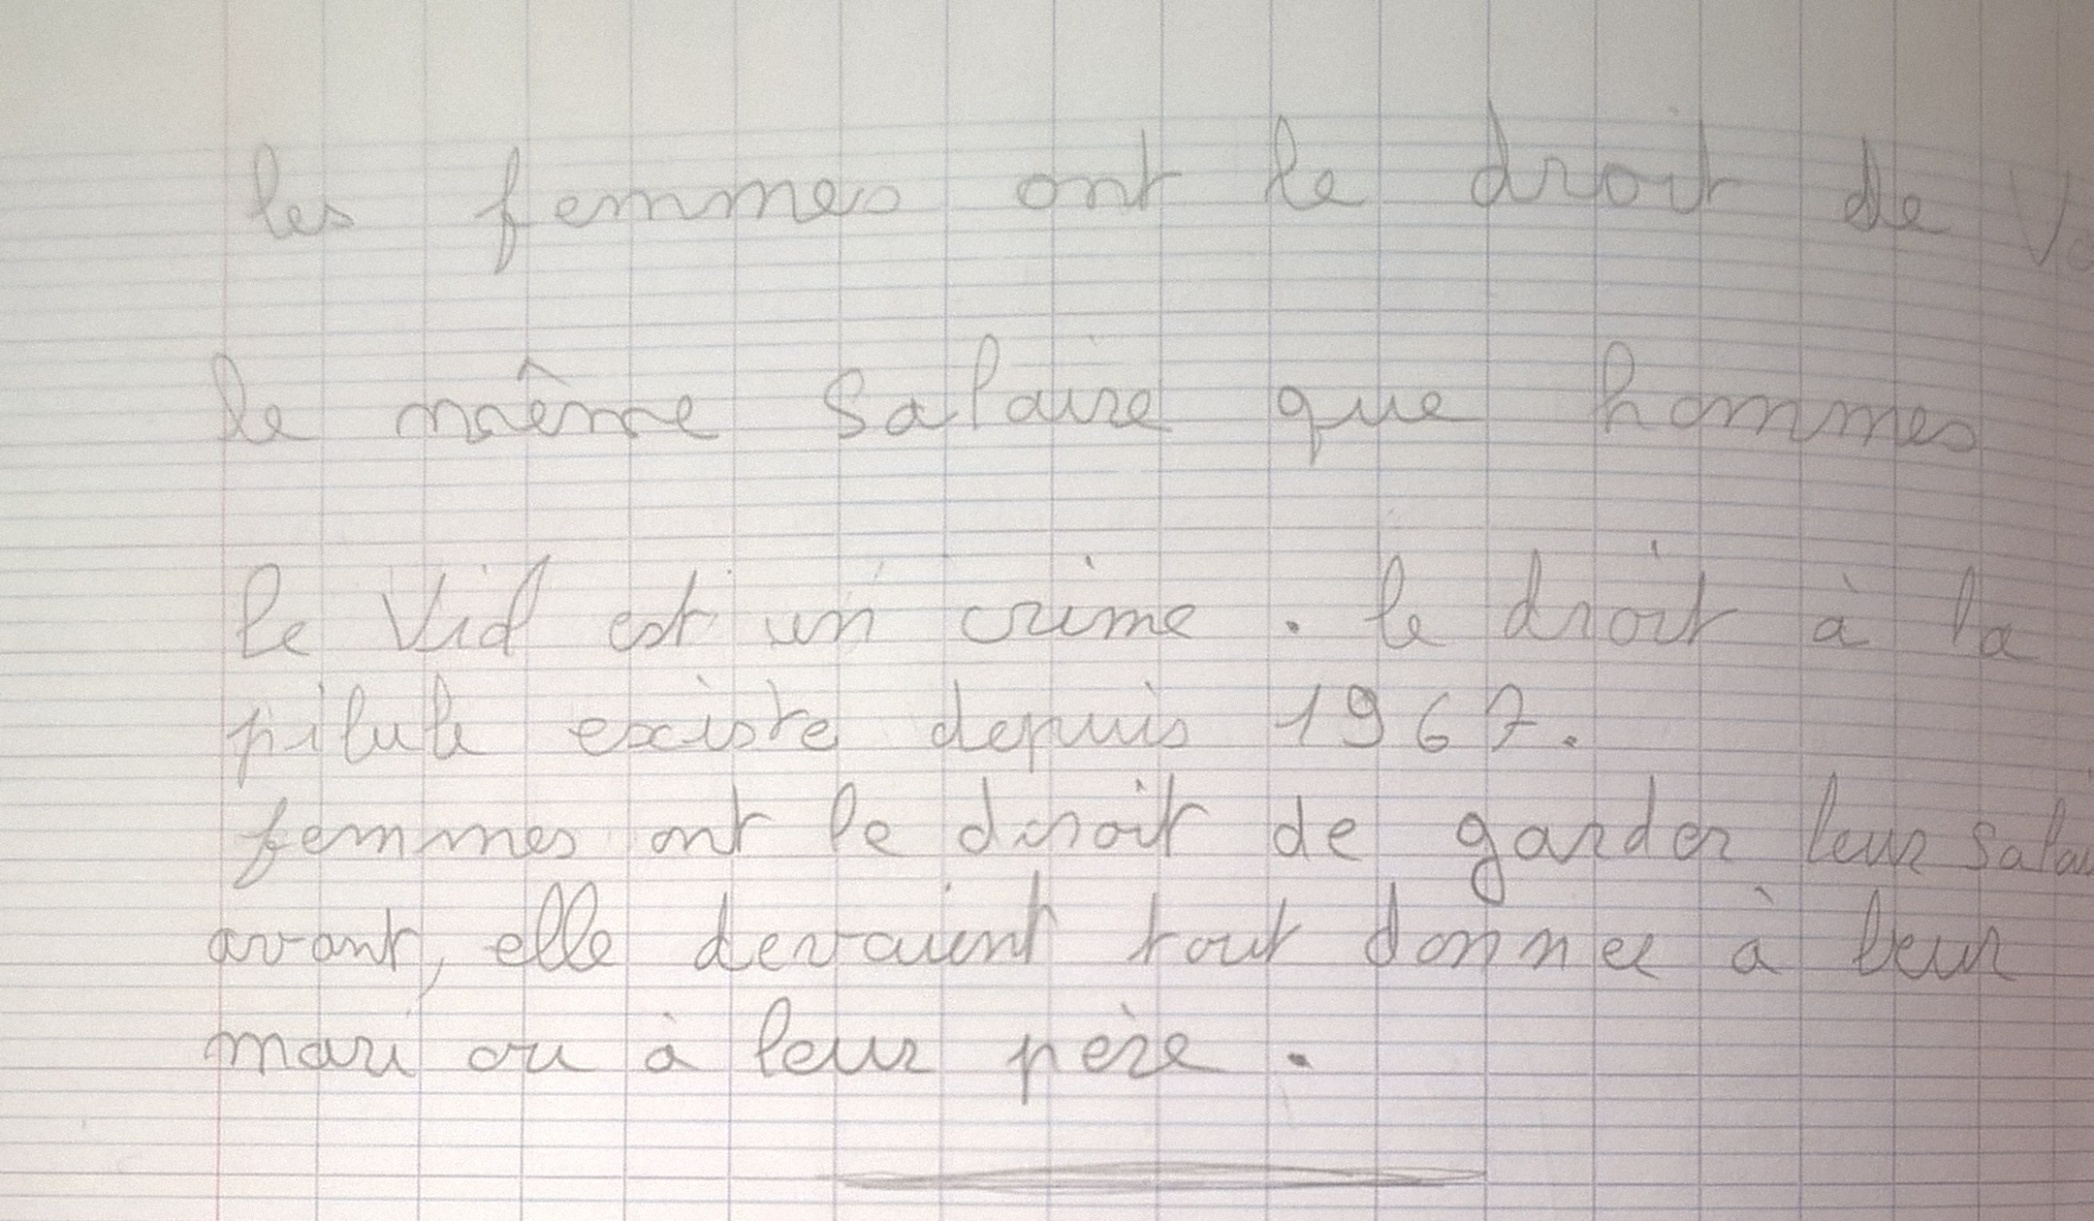 les femmes ont le droit de
le même salaire que hommes
le Viol est un crime . le droit à la
pilule existe depuis 1967.
femmes ont le droit de garder leur
avant, elle devaient tout donnee à leur
mari ou à leur père .